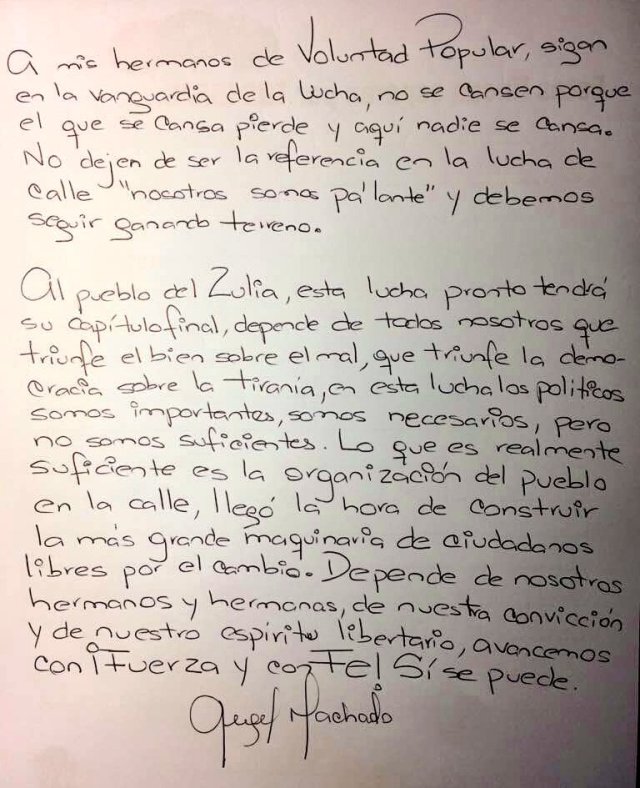 A mis hermanos de Voluntad Popular, sigan
en la vanguardia de la lucha, no se cansen porque
el que se cansa pierde y aquí nadie se cansa.
No dejen de ser la referencia en la lucha de
calle "nosotros somos pa'lante" y debemos
seguir ganando terreno.
Al pueblo del Zulia, esta lucha pronto tendrá
su capítulo final, depende de todos nosotros que
triunfe el bien sobre el mal, que triunfe la demo-
cracia sobre la tiranía, en esta lucha los politicos
somos importantes, somos necesarios, pero
no somos suficientes. Lo que es realmente
suficiente es la organización del pueblo
en la calle, llegó la hora de construir
la más grande maquinaria de ciudadanos
libres por el cambio. Depende de nosotros
hermanos y hermanas, de nuestra convicción
y de nuestro espíritu libertario, avancemos
con ¡Fuerza y con Fe! Sí se puede.
Angel Machado